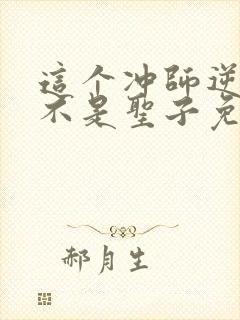 這个冲師逆
不是聖子免
郝月生